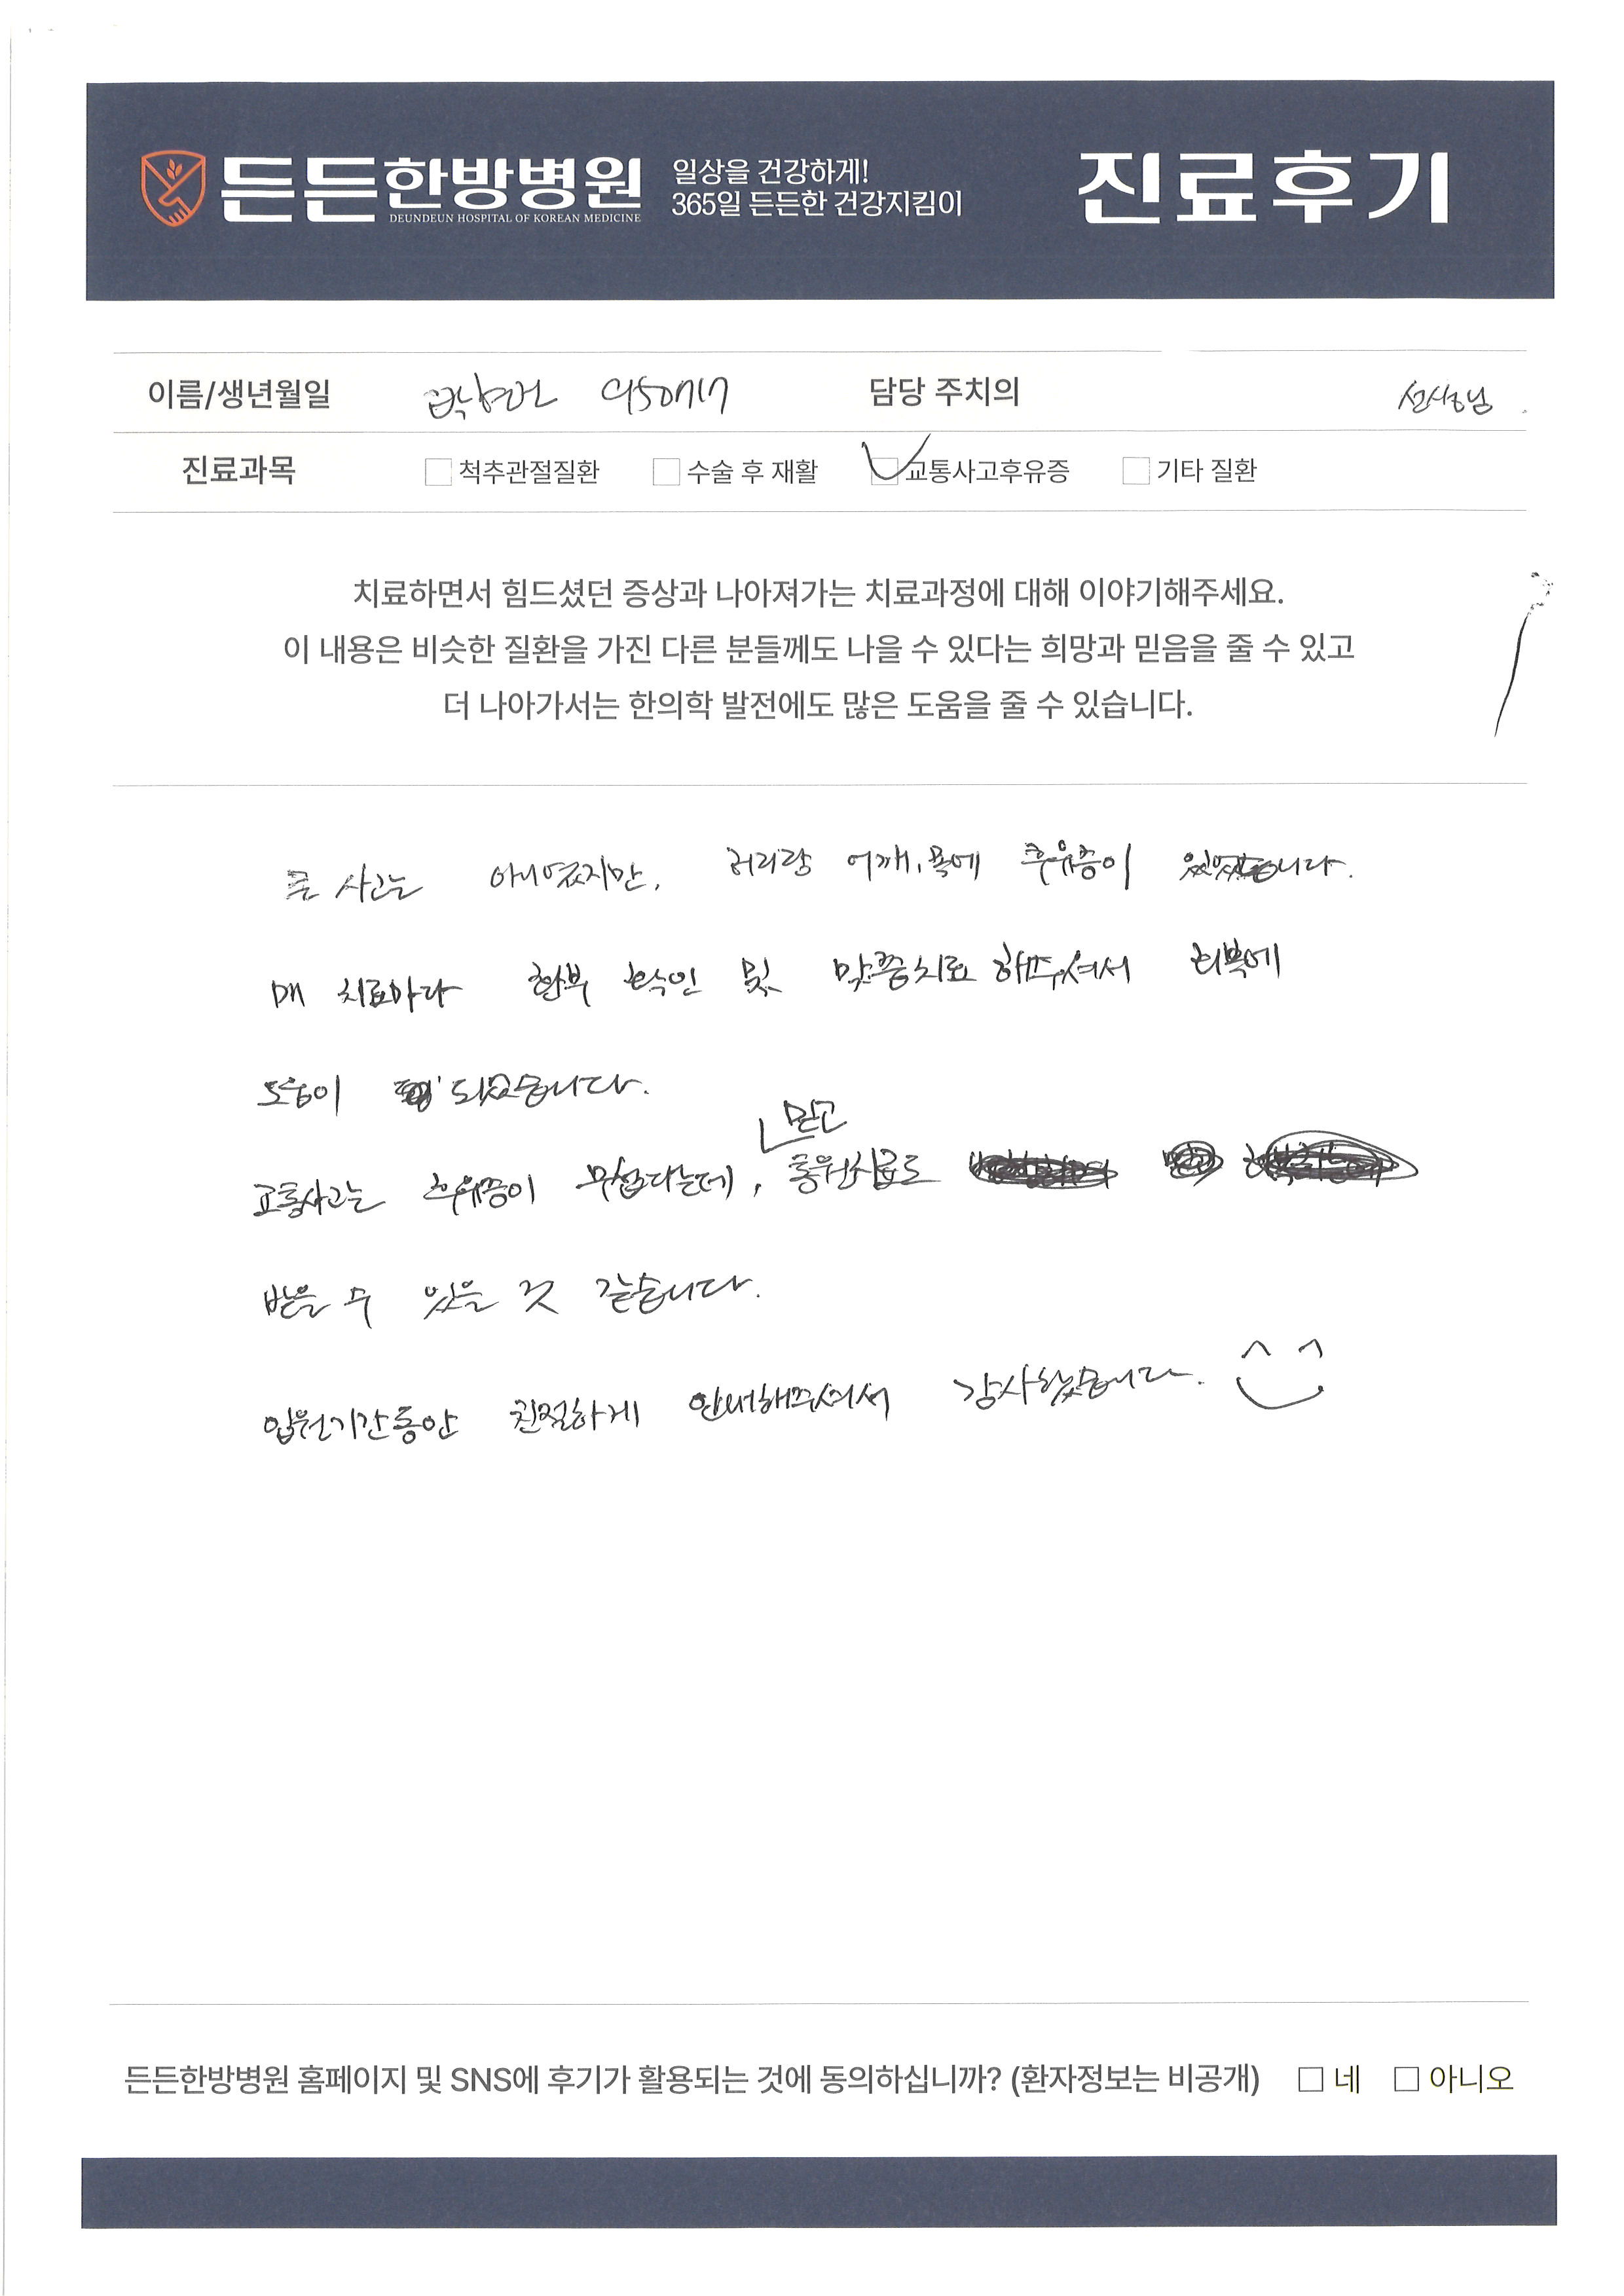 든든한방병원
DEUNDEUN HOSPITAL OF KOREAN MEDICINE
일상을 건강하게!
365일 든든한 건강지킴이
진료후기
이름/생년월일 950717 담당 주치의 선생님
진료과목 척추관절질환 수술 후 재활 교통사고후유증 기타 질환
치료하면서 힘드셨던 증상과 나아져가는 치료과정에 대해 이야기해주세요.
이 내용은 비슷한 질환을 가진 다른 분들께도 나을 수 있다는 희망과 믿음을 줄 수 있고
더 나아가서는 한의학 발전에도 많은 도움을 줄 수 있습니다.
큰 사고는 아니였지만, 허리랑 어깨, 목에 후유증이 있었습니다.
매 치료마다 환부 확인 및 맞춤치료 해주셔서 회복에
도움이 되었습니다.
교통사고는 후유증이 무섭다는데, 믿고 통원치료도
받을 수 있을 것 같습니다.
입원기간동안 친절하게 안내해주셔서 감사했습니다. ^^
든든한방병원 홈페이지 및 SNS에 후기가 활용되는 것에 동의하십니까? (환자정보는 비공개) 네 아니오